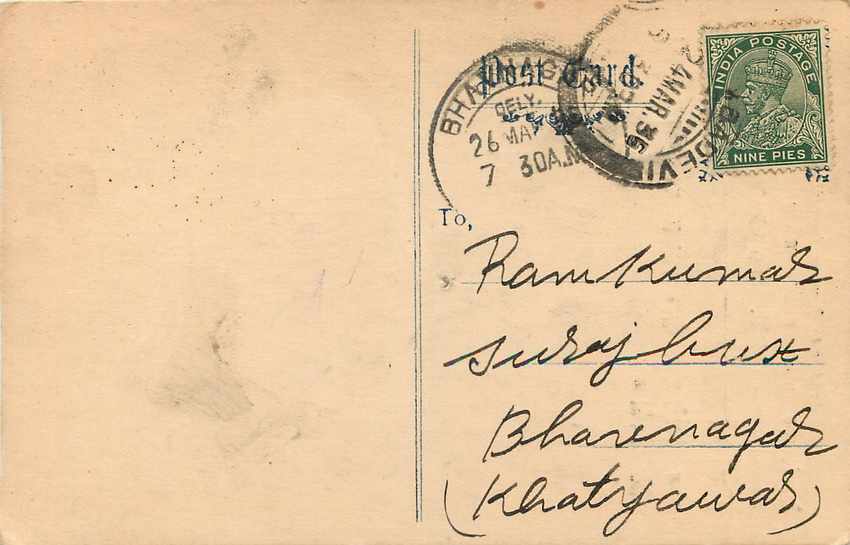 Post Card.
BHAVNAGAR
DELY.
26 MAR
7 30A.M
24 MAR. 35
INDIA POSTAGE
NINE PIES
To,
Ramkumar
suraj bux
Bhavnagar
(Khatyawar)